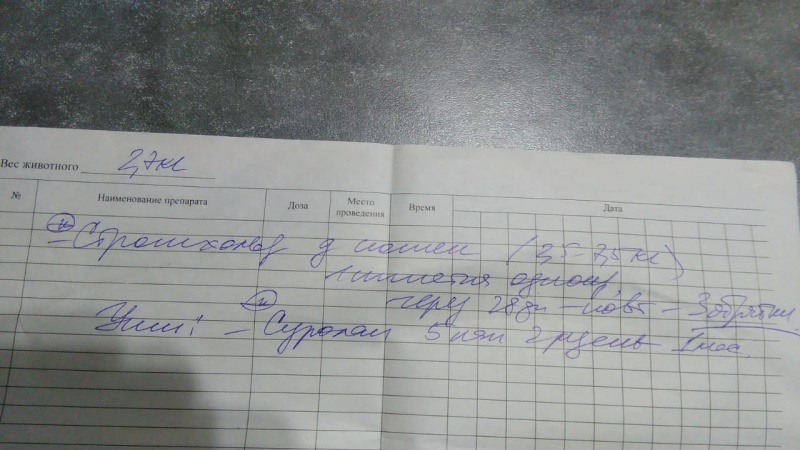 Вес животного 2,7кг
№ Наименование препарата Доза Место проведения Время Дата
– Стронгхолд д кошек (2,5–7,5 кг)
1 пипетка однокр,
через 28 дн – повт – 3 обработки
Уши: – Суролан 5 кап 2 р/день 1 мес.